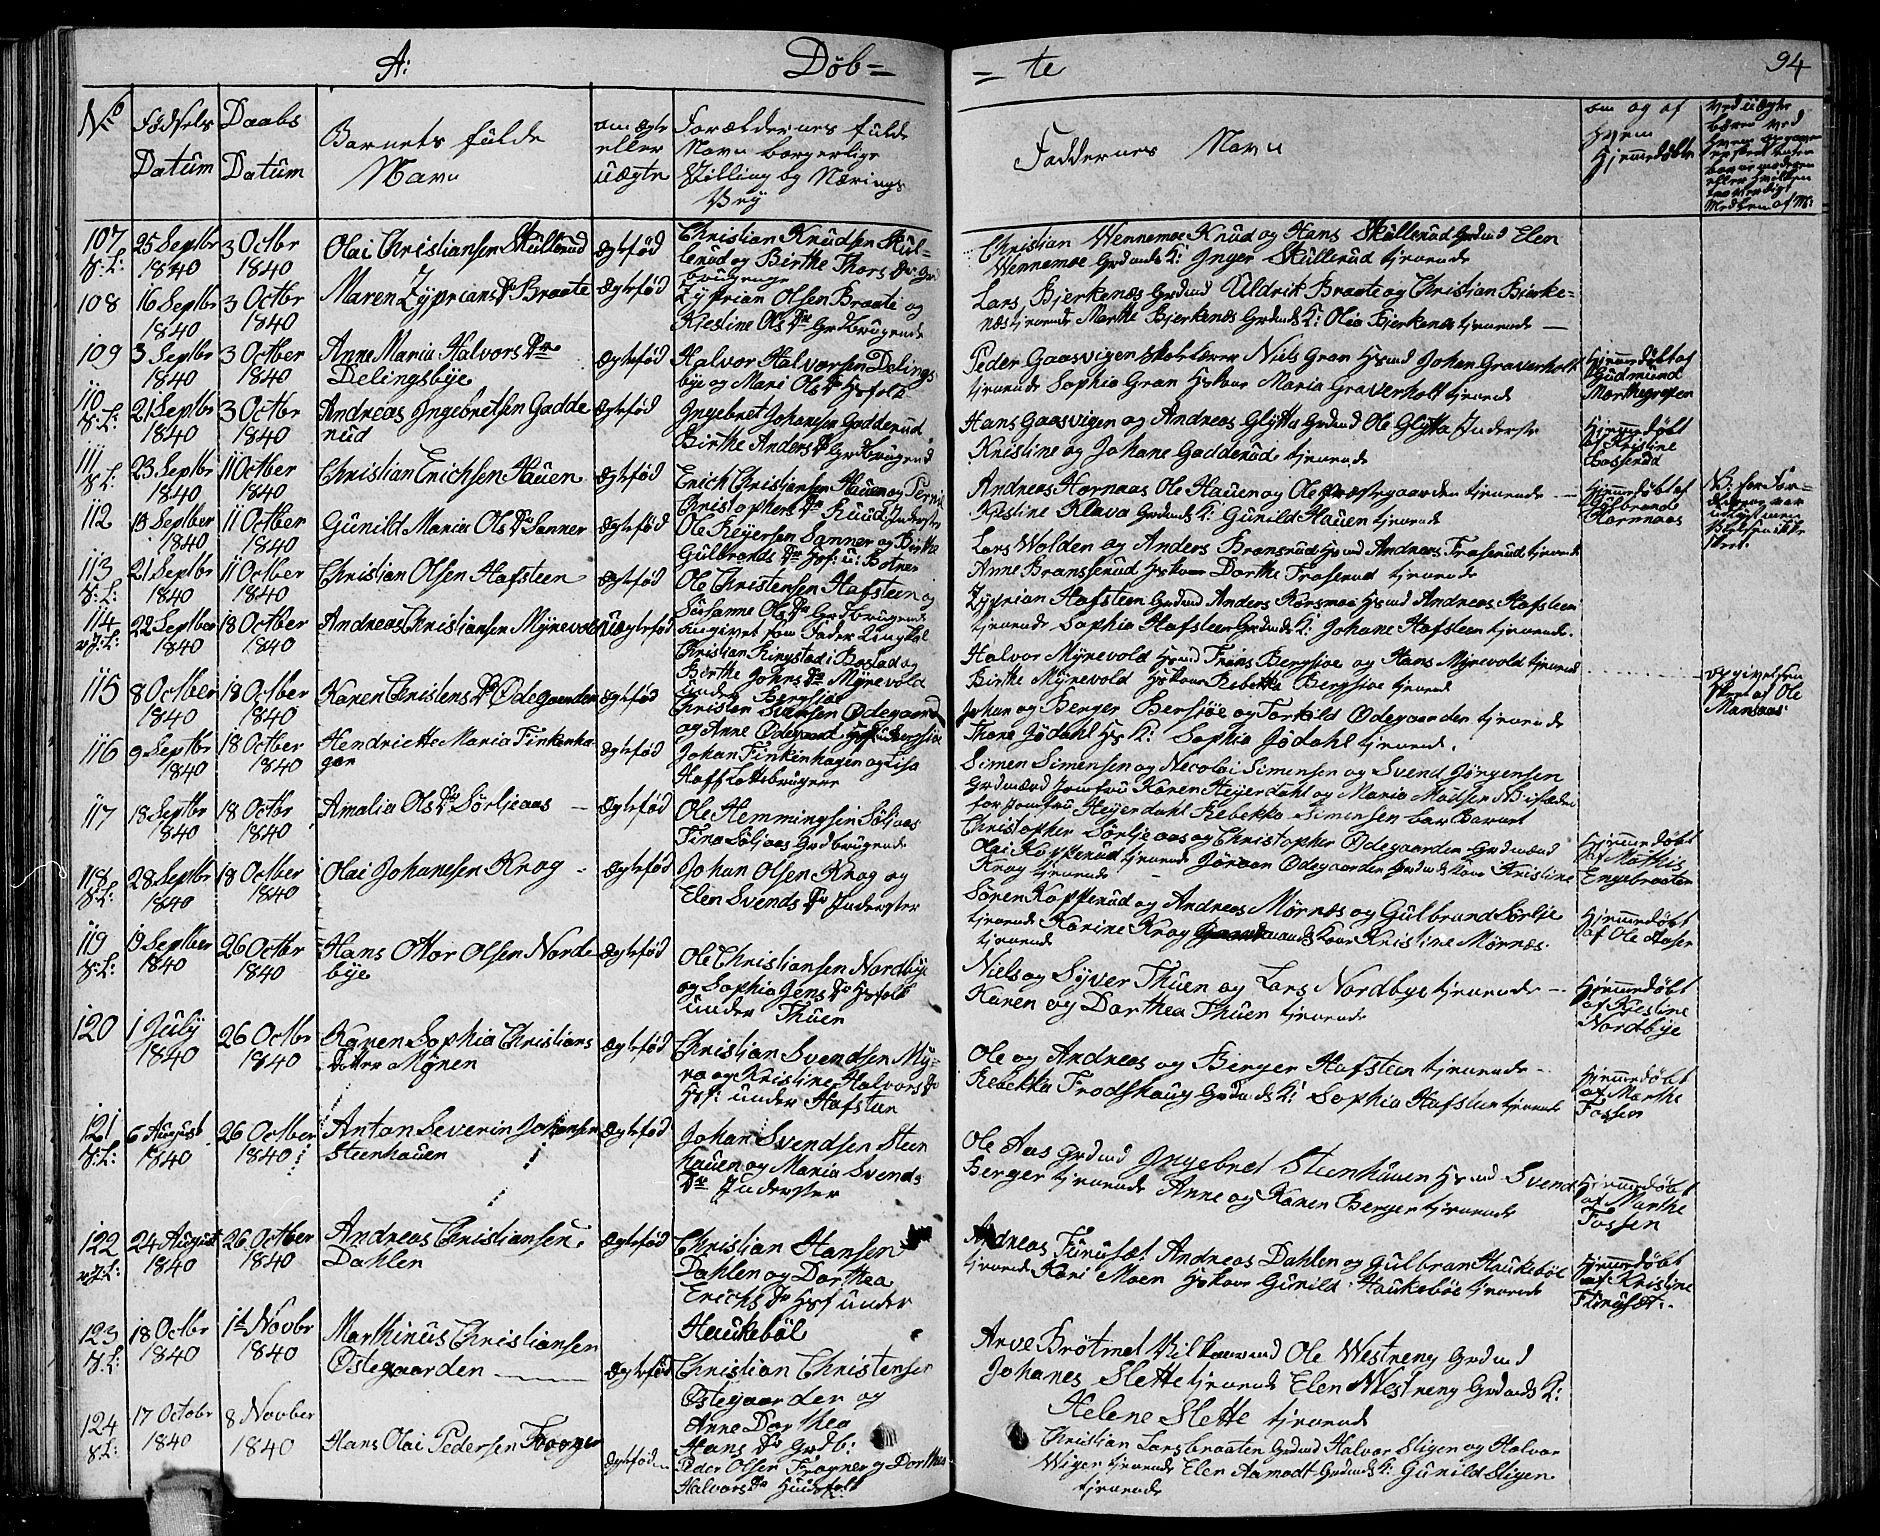 A:
Döb=
= te
94
No
Födsels Datum
Daabs Datum
Barnets fulde Navn
om ægte eller uægte
Forældrenes fulde Navn borgerlige Stilling og Nærings Vej
Faddernes Navn
om og af Hvem Hjemmedöbt
107
25 Septbr 1840
3 Octbr 1840
Olai Christiansen Skullerud
ægtefød
Christian Knudsen Skul=
lerud og Birthe Thors Dr
Christian Wennemoe Knud og Hans Skullerud Grdmd Elen
Wennemoe Grdmds K: Inger Skullerud tjenende
108
16 Septbr 1840
3 Octbr 1840
Maren Zyprians Dr Braate
ægtefød
Zyprian Olsen Braate og
Kiestine Ols Dr Grdbrugende
Lars Bjerkenæs Grdmd Uldrik Braate og Christian Bjerke=
næs tjenende Marthe Bjerkenæs Grdmds K: Olea Bjerkenæs tjenende
109
3 Septbr 1840
3 Octber 1840
Anne Maria Halvors Dr
Delingsbye
ægtefød
Halvor Halvorsen Delings
bye og Mari Ols Dr Hsfolk
Peder Gaasvigen Skolelærer Niels Gran Hsmd Johan Graverholt
tjenende Sophia Gran Hskone Maria Graverholt tjenende
Hjemmedöbt af
Gudmund
110
21 Septbr 1840
3 Octbr 1840
Andreas Ingebretsen Gadde
rud
ægtefød
Ingebret Johansen Gadderud
Birthe Anders Dr Grdbrugend
Hans Gaasvigen og Andreas Glytta Grdmd Ole Glytta Inderste
Kristine og Johane Gadderud tjenende
Hjemmedöbt
af Kristine
Bosserud
111
23 Septbr 1840
11 Octber 1840
Christian Erichsen Hauen
ægtefød
Erich Christiansen Hauen og Pernil
Christophers Dr Ruud Inderster
Andreas Hornaas Ole Hauen og Ole Præstegaarden tjenende
Kiestine Klava Grdmds K: Gunild Hauen tjenende
Hjemmedöbt af
Hornaas
112
13 Septber 1840
11 Octber 1840
Gunild Maria Ols Dr Sanner
ægtefød
Ole Reyersen Sanner og Birthe
Gulbrands Dr Hsf: u: Botner
Lars Wolden og Anders Bransrud Hsmd Andreas Froserud tjenende
Anne Bransserud Hskone Dorthe Froserud tjenende
113
21 Septbr 1840
11 Octber 1840
Christian Olsen Hafsteen
ægtefød
Ole Christensen Hafsteen og
Sørsanne Ols Dr Grdbrugende
Zyprian Hafsteen Grdmd Anders Korsmoe Hsmd Andreas Hafsteen
tjenende Sophia Hafsteen Grdmds K: Johane Hafsteen tjenende.
114
22 Septber 1840
18 Octber 1840
Andreas Christiansen Myrevold
Uægtefød
Angivet som Fader Ungkal
Christian Ringstad i Bostad og
Birthe Johns Dr Myrevold
under Bergsioe
Halvor Myrevold Hsmd Frans Bergsioe og Hans Myrevold tjenend
Birthe Myrevold Hskone Rebekka Bergsioe tjenend
Opgivelsen
skeet af Ole
115
8 Octber 1840
18 Octber 1840
Karen Christens Dr Ödegaarden
ægtefød
Christen Svensen Ödegaard
og Anne Ödegaard
Johan og Berger Bersiøe og Torkild Ødegaarden tjenende
Thore Jødahl Hs K: Sophia Jødahl tjenend.
116
9 Septbr 1840
18 Octber 1840
Hendriette Maria Finkenha
gen
ægtefød
Johan Finkenhagen og Lisa
Hoff Lottebrugere
Simen Simensen og Necolai Simensen og Svend Jörgensen
Grdmænd Jomfru Karen Heyerdahl og Maria Madsen
for Jomfru Heyerdahl Rebekka Simensen bar Barnet
117
18 Septbr 1840
18 Octbr 1840
Amalia Ols Dr Sørljeaas
ægtefød
Ole Hemmingsen Søljaas
Tina Søljaas Grdbrugende
Christopher Sørljeaas og Christopher Ødegaarden Grdmænd
Olai Kopperud tjenende Jöraan Ødegaarden Grdmds kone Kristine
Krog tjenende
Hjemmedöbt
af Mathis
Engebraaten
118
28 Septbr 1840
18 Octber 1840
Olai Johansen Krog
ægtefød
Johan Olsen Krog og
Elen Svends Dr Inderster
Søren Kopperud og Andreas Mørnæs og Gulbrand Sørlje
tjenende Karine Krog Kristine Mørnæs
tjenende
Hjemmedöbt
af Ole Aasen
119
19 Septber 1840
26 Octbr 1840
Hans Ottor Olsen Norde
bye
ægtefød
Ole Christiansen Nordbye
og Sophia Jens Dr Hsfolk
under Thuen
Niels og Syver Thuen og Lars Nordbye tjenende
Karen og Dorthea Thuen tjenende
Hjemmedöbt
af Kristine
Nordbye
120
1 July 1840
26 Octbr 1840
Karen Sophia Christians
Datter Myren
ægtefød
Christian Svendsen My=
re og Kristine Halvors Dr
Hsf: under Hafsteen
Ole og Andreas og Berger Hafsteen tjenende
Rebekka Frodshaug Grdmds K: Sophia Hafsteen tjenende
Hjemmedöbt
af Marthe
Fossen
121
6 August 1840
26 Octber 1840
Anton Severin Johansen
Steenhauen
ægtefød
Johan Svendsen Steen
hauen og Maria Svends
Dr Inderster
Ole Aas Grdmd Ingebret Steenhauen Hsmd Svend
Berger tjenende Anne og Karen Berger tjenende
Hjemmedöbt
af Marthe
Fossen
122
24 August 1840
26 Octber 1840
Andreas Christiansen
Dahlen
ægtefød
Christian Hansen
Dahlen og Dorthea
Erichs Dr Hsf under
Haukeböl
Andreas Furuset Andreas Dahlen og Gulbran Haukeböl
tjenende Kari Moen Hskone Gunild Haukeböe tjenende
Hjemmedöbt
af Kristine
Furuset.
123
18 Octbr 1840
1st Novbr 1840
Marthinus Christiansen
Østegaarden
ægtefød
Christian Christensen
Østegaarden og
Anne Dorthea
Hans Dr Grdb:
Arve Brøtmet Ole Westreng Grdmd
Johanes Slette tjenende Elen Westreng Grdmds K:
Helene Slette tjenende
124
17 Octobr 1840
8 Novber 1840
Hans Olai Pedersen Frogner
ægteføden
Peder Olsen Frogner og Dorthea
Halvors Dr
Christian Larsbraaten Grdmd Halvor Stigen og Halvor
Wiger tjenende Elen Aamodt Grdmds K: Gunild Stigen
tjenende